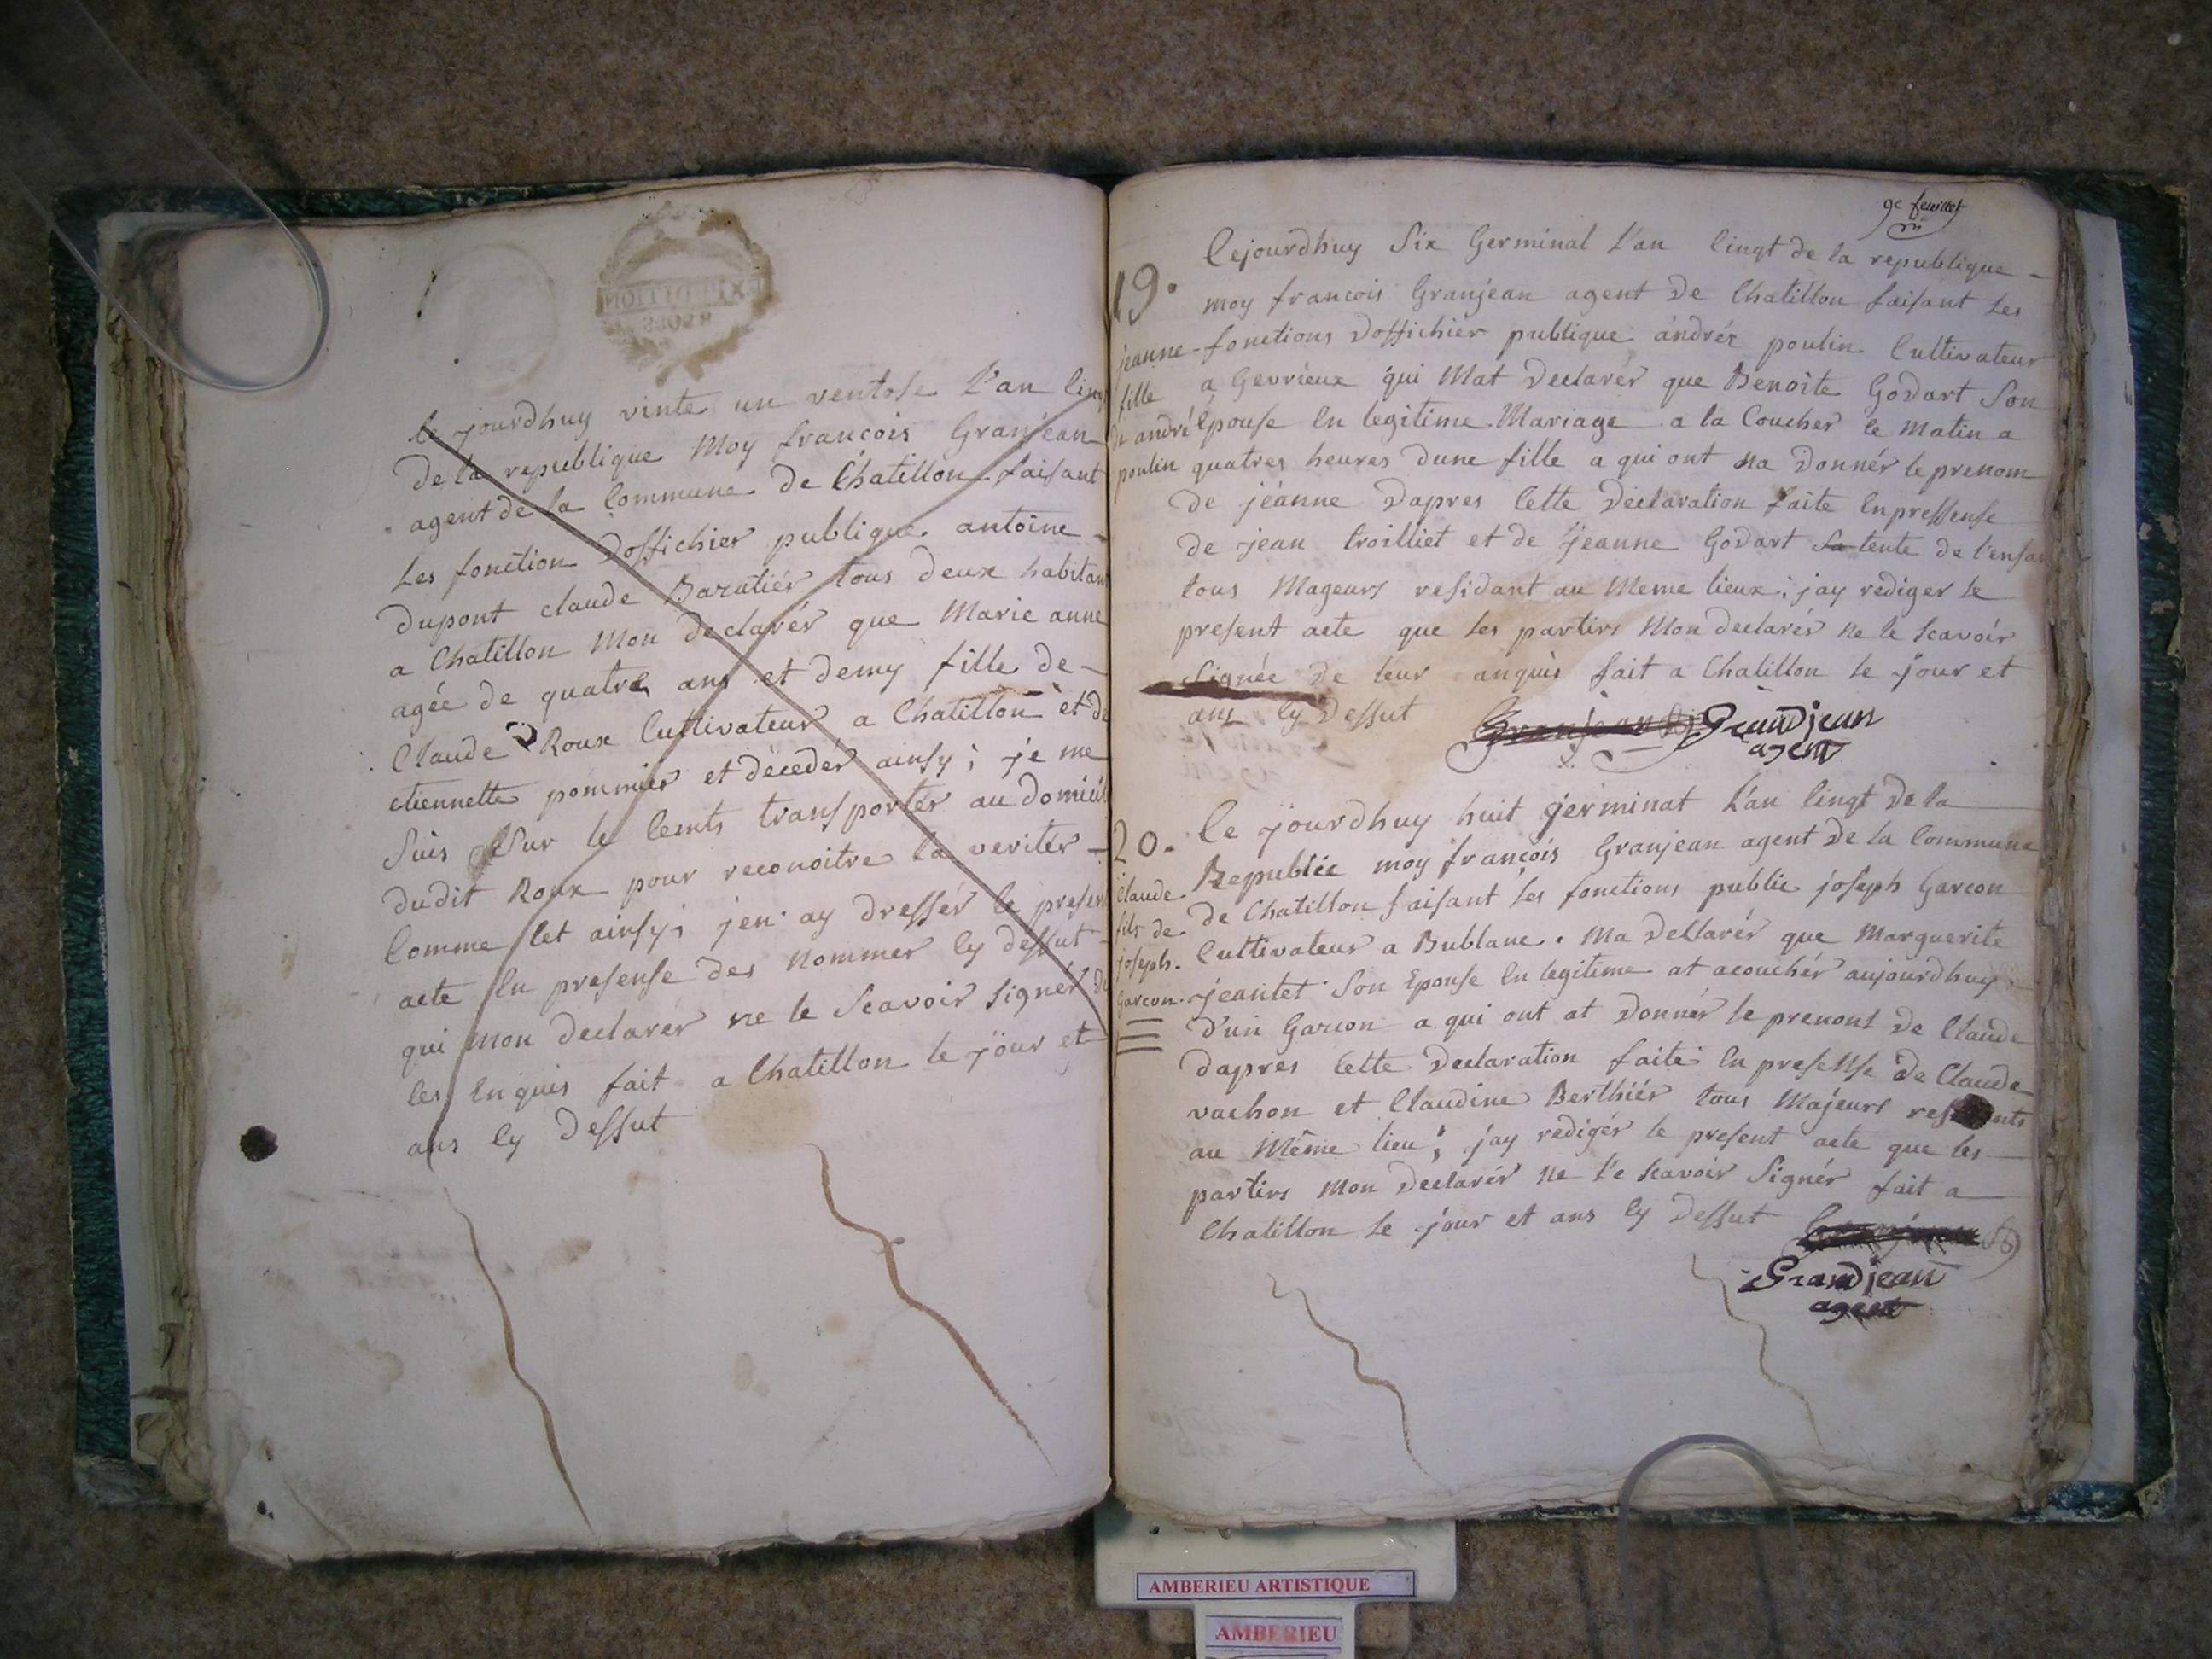 Ce jourdhuy vinte un ventose L'an cinq
de la republique Moy francois Granjean
agent de la Commune de Chatillon faisant
Les fonction Doffichier publique antoine
Dupont claude Baratiér tous deux habitant
a Chatillon Mon declarér que Marie anne
agée de quatre ans et demy fille de
Claude Roux Cultivateur a Chatillon et de
etiennette pommier et décedér ainsy ; je me
Suis Sur le Cents transportér au domicile
dudit Roux pour reconoitre la veritér
Comme cet ainsy ; jen ay dressér le present
acte En presense des nommer Cy dessut
qui Mon declarér ne le Scavoir Signér de
les Enquis fait a Chatillon le jour et
ans Cy dessut
EXPEDITION
9e feuillet
19.
Cejourdhuy Six Germinal L'an Cingt de la republique
moy francois Granjean agent de Chatillon faisant Les
fonctions Doffichier publique andrér poulin Cultivateur
a Gevrieux qui Mat Declarér que Benoite Godart Son
Epouse En legitime Mariage a la Coucher le Matin a
quatres heures Dune fille a qui ont na Donnér le prenom
de jéanne Dapres Cette Declaration faite Enpressense
de jean troilliet et de jeanne Godart Sa tente de l'enfan
tous Mageurs residant au Meme lieux ; jay rediger le
present acte que Les partirs Mon declarér ne le Scavoir
Signée De leur anquis fait a Chatillon le jour et
ans Cy Dessut
jeanne
fille
de andré
poulin
Granjean Grandjean
agent
20.
Ce jourdhuy huit germinat L'an Cingt de la
Republice moy francois Granjean agent de la Commune
de Chatillon faisant Les fonctions public joseph Garcon
Cultivateur a Bublane. Ma Dellarér que Marguerite
jeantet Son Epouse En legitime at acouchér aujourdhuy
d'un Garcon a qui ont at Donnér le prenont de Claude
dapres Cette Declaration faite En presensse de Claude
vachon et Claudine Berthiér tous Majeurs
au Même lieu ; j'ay redigér le present acte que les
partirs Mon Declarér ne l'e Scavoir Signér fait a
Chatillon le jour et ans Cy Dessut
Claude
fils de
joseph.
Garcon.
Grandjean
agent
AMBERIEU ARTISTIQUE
AMBERIEU